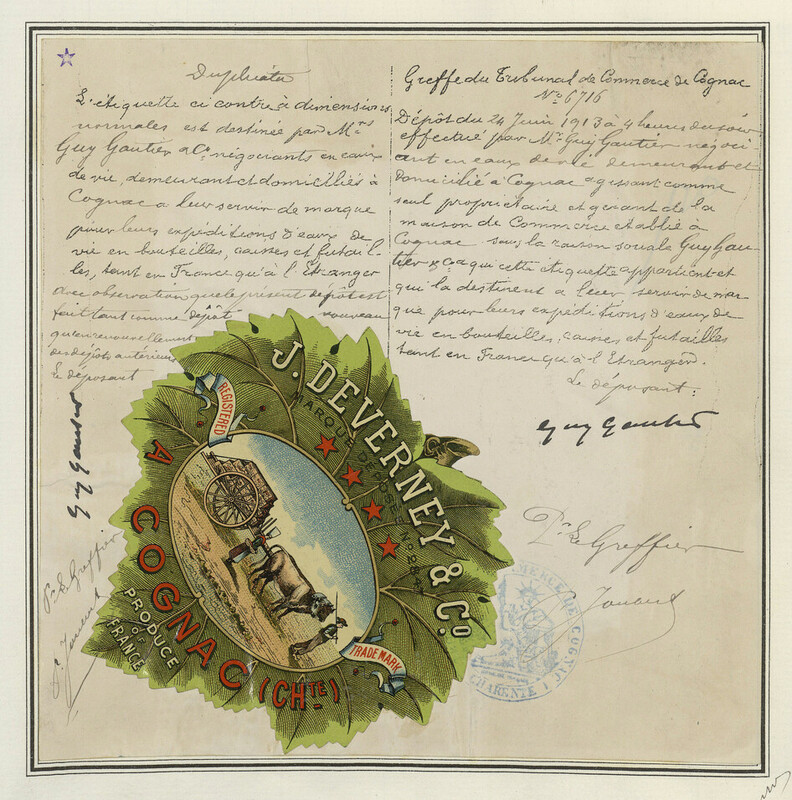 Duplicata
L'étiquette ci contre à dimensions
normales est destinée par Mrs
Guy Gautier & Co, négociants en eaux
de vie, demeurant et domiciliés à
Cognac a leur servir de marque
pour leurs expéditions d'eaux de
vie en bouteilles, caisses et futail-
les, tant en France qu'à l'Etranger
avec observation que le présent dépôt est
fait tant comme dépôt nouveau
qu'en renouvellement
des dépôts antérieurs
Le déposant
Guy Gautier
Pr Le Greffier
Greffe du Tribunal de Commerce de Cognac
No 6716
Dépôt du 24 Juin 1913 à 4 heures du soir
effectué par Mr Guy Gautier négoci-
ant en eaux de vie demeurant et
domicilié à Cognac agissant comme
seul propriétaire et gérant de la
maison de Commerce établie à
Cognac sous la raison sociale Guy Gau-
tier & Co a qui cette étiquette appartient et
qui la destinent a leur servir de mar-
que pour leurs expéditions d'eaux de
vie en bouteilles, caisses et futailles
tant en France qu'à l'Etranger.
Le déposant:
Guy Gautier
Pr Le Greffier
J. DEVERNEY & Co
MARQUE DÉPOSÉE No
REGISTERED
TRADE MARK
A COGNAC (CHTE)
PRODUCE
OF
FRANCE
COMMERCE DE COGNAC
CHARENTE